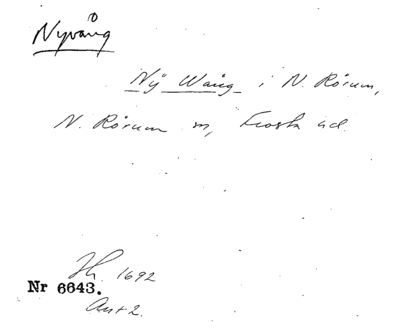 Nyvång
Nÿ Wång i N. Rörum,
N. Rörum sn, Frosta hd.
Jb. 1692
Nr 6643.
Ant 2.